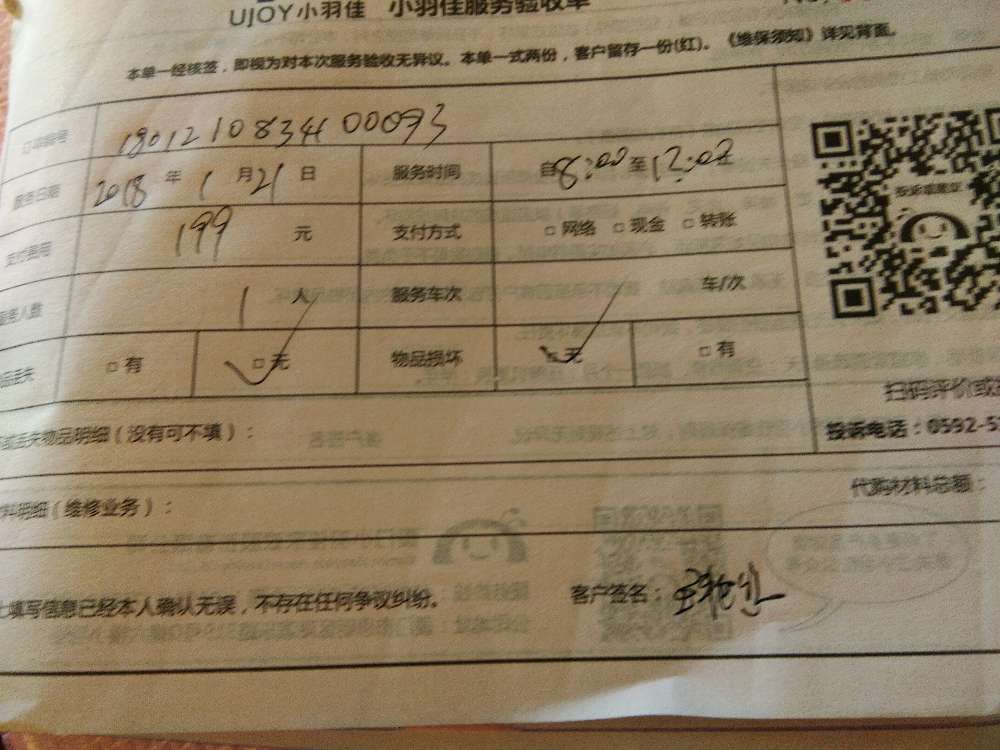 UJOY小羽佳 小羽佳服务验收单
本单一经核签，即视为对本次服务验收无异议。本单一式两份，客户留存一份(红)。《维保须知》详见背面。
订单编号 180121083400093
服务日期 2018 年 1 月 21 日 服务时间 自8:00 至12:00 止
支付费用 199 元 支付方式 □ 网络 □ 现金 □ 转账
服务人数 1 人 服务车次 车/次
品丢失 □ 有 □ 无 物品损坏 □ 无 □ 有
丢失物品明细（没有可不填）：
扫码评价或
投诉建议
投诉电话：0592-5
料明细（维修业务）：
代购材料总额：
上填写信息已经本人确认无误，不存在任何争议纠纷。 客户签名：